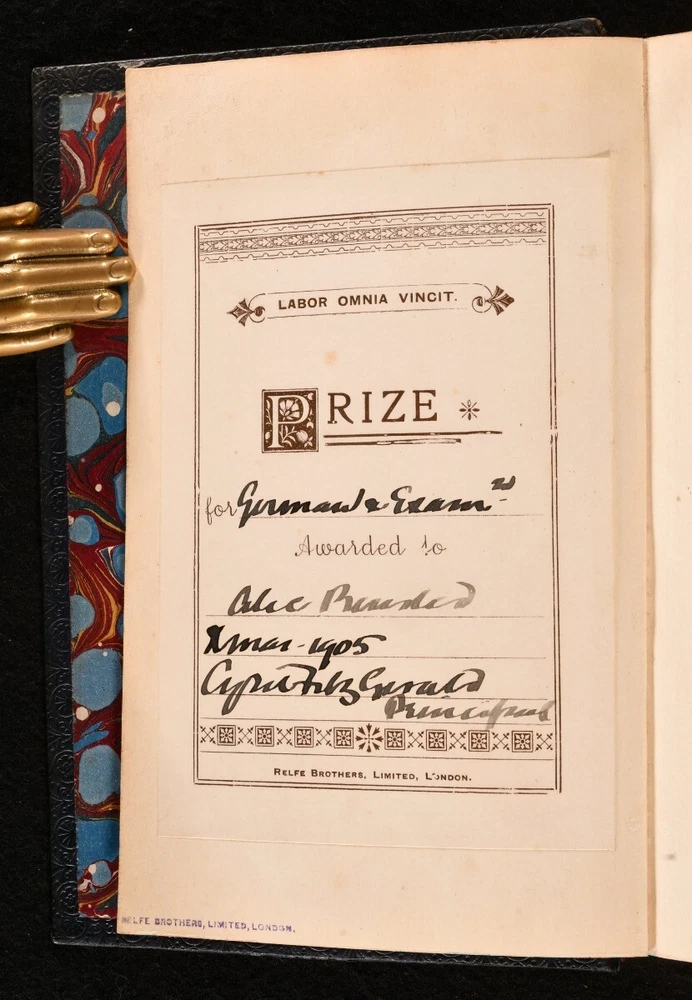 LABOR OMNIA VINCIT.
PRIZE
for German & Exam
Awarded to
Alec
Xmas - 1905
Cyril FitzGerald
Principal
RELFE BROTHERS, LIMITED, LONDON.
RELFE BROTHERS, LIMITED, LONDON.